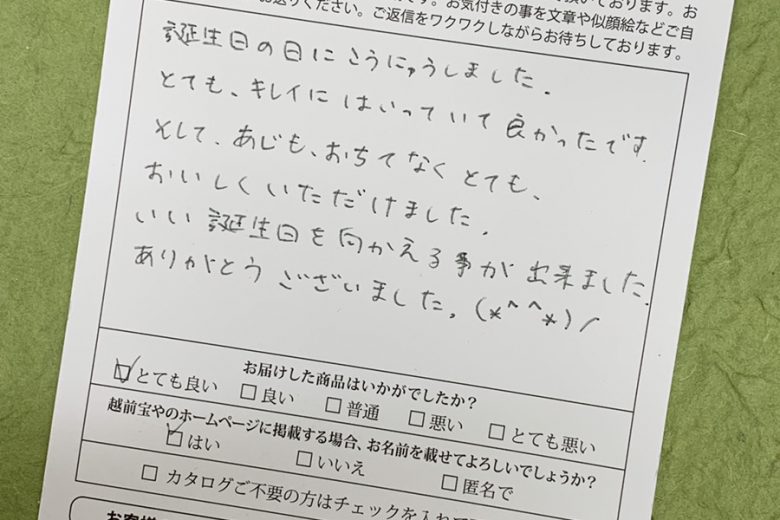 頂いております。お
です。お気付きの事を文章や似顔絵などご自
お送りください。ご返信をワクワクしながらお待ちしております。
誕生日の日にこうにゅうしました.
とても、キレイにはいっていて良かったです.
そして、あじも、おちてなくとても、
おいしくいただけました.
いい誕生日を向かえる事が出来ました.
ありがとうございました。(*^^*)/
お届けした商品はいかがでしたか?
☑とても良い □良い □普通 □悪い □とても悪い
越前宝やのホームページに掲載する場合、お名前を載せてよろしいでしょうか?
☑はい □いいえ □匿名で
□ カタログご不要の方はチェックを入れて
お客様